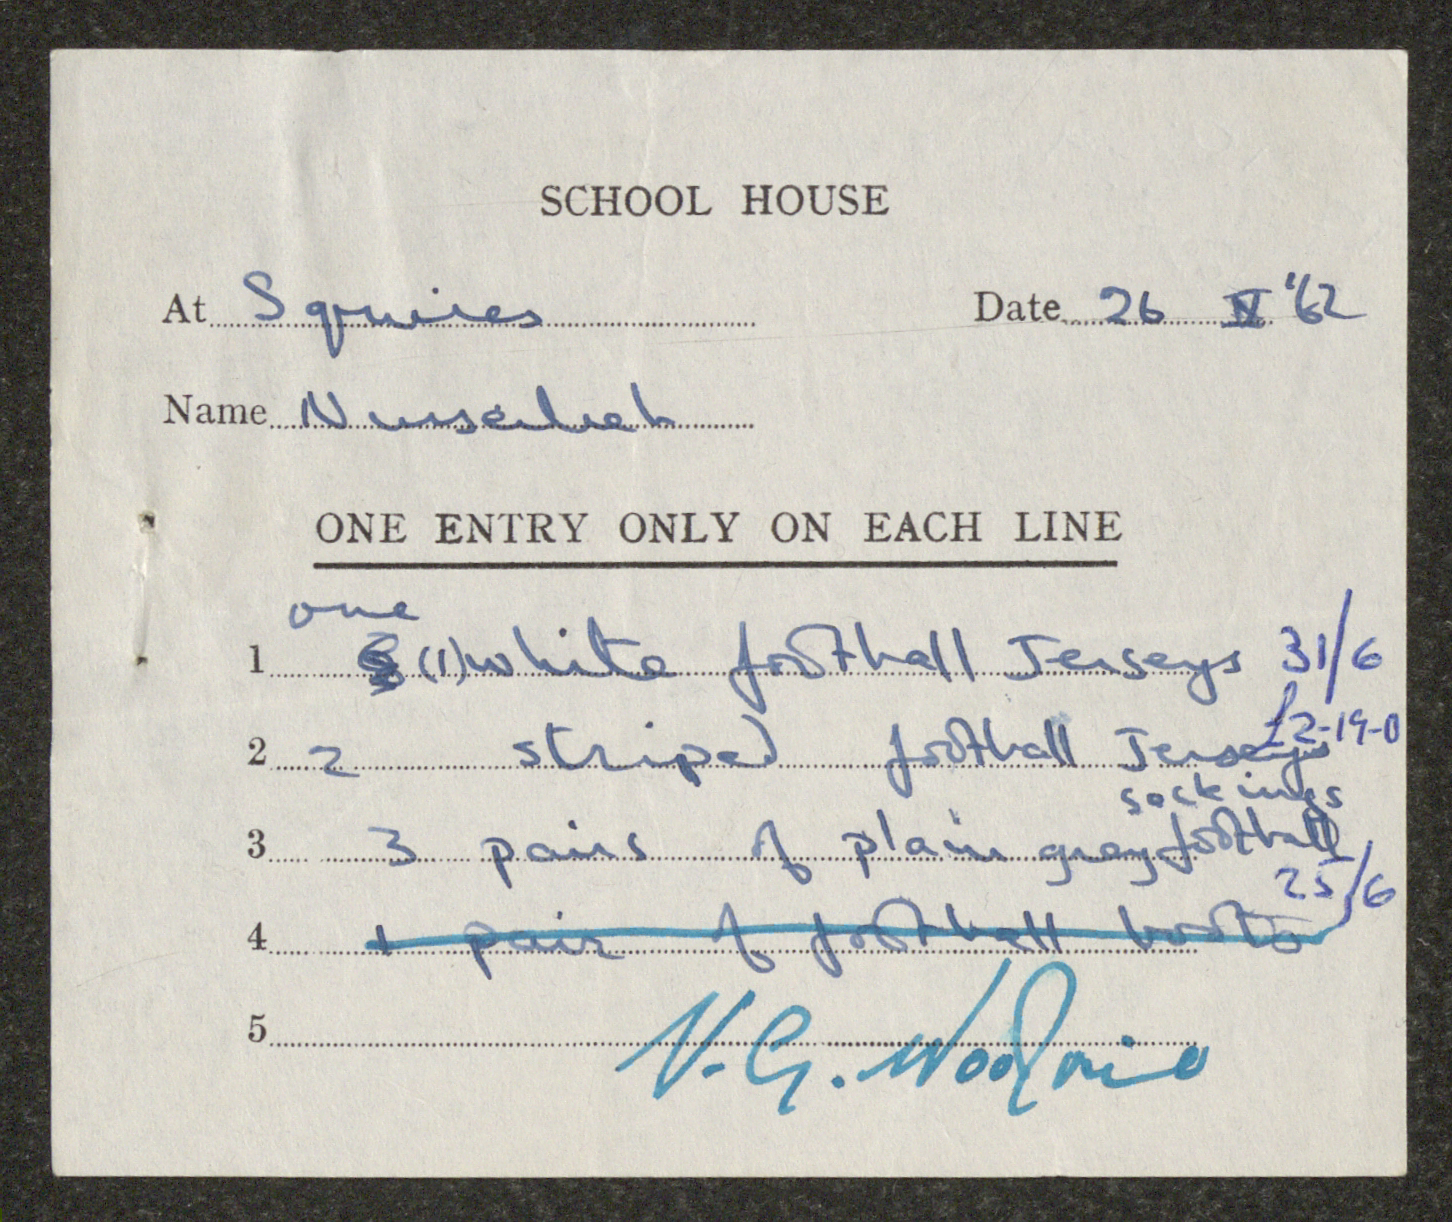 SCHOOL HOUSE
At Squires Date 26 IV '62
Name
ONE ENTRY ONLY ON EACH LINE
one
1 (1) white football Jerseys 31/6
£2-19-0
2 2 striped football Jerseys
sockings
3 3 pairs of plain grey football
25/6
4 1 pair of football boots
5 V. G. Woolnie